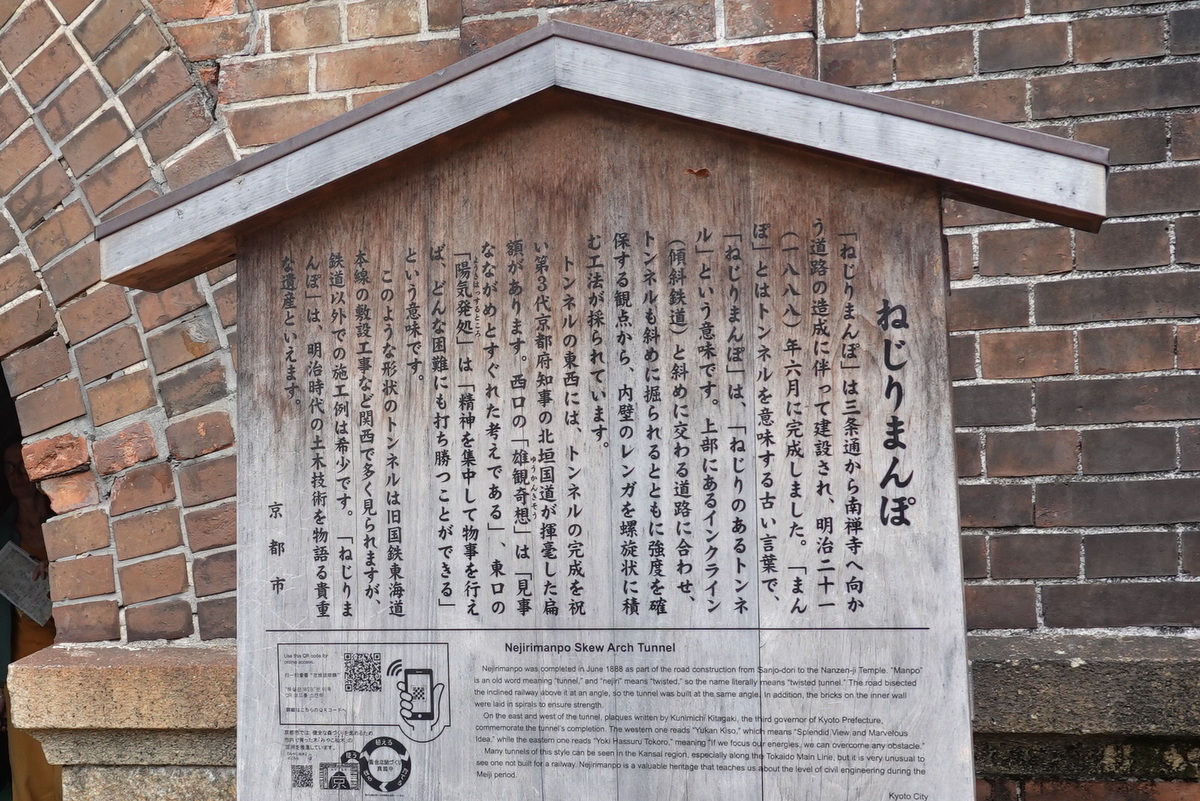 ねじりまんぽ
「ねじりまんぽ」は三条通から南禅寺へ向か
う道路の造成に伴って建設され、明治二十一
（一八八八）年六月に完成しました。「まん
ぽ」とはトンネルを意味する古い言葉で、
「ねじりまんぽ」は、「ねじりのあるトンネ
ル」という意味です。上部にあるインクライン
（傾斜鉄道）と斜めに交わる道路に合わせ、
トンネルも斜めに掘られるとともに強度を確
保する観点から、内壁のレンガを螺旋状に積
む工法が採られています。
トンネルの東西には、トンネルの完成を祝
い第３代京都府知事の北垣国道が揮毫した扁
額があります。西口の「雄観奇想」は「見事
ゆうかんきそう
なながめとすぐれた考えである」、東口の
「陽気発処」は「精神を集中して物事を行え
ようきはっするところ
ば、どんな困難にも打ち勝つことができる」
という意味です。
このような形状のトンネルは旧国鉄東海道
本線の敷設工事など関西で多く見られますが、
鉄道以外での施工例は希少です。「ねじりま
んぽ」は、明治時代の土木技術を物語る貴重
な遺産といえます。
京都市
Nejirimanpo Skew Arch Tunnel
Nejirimanpo was completed in June 1888 as part of the road construction from Sanjo-dori to the Nanzen-ji Temple. "Manpo"
is an old word meaning "tunnel," and "nejiri" means "twisted," so the name literally means "twisted tunnel." The road bisected
the inclined railway above it at an angle, so the tunnel was built at the same angle. In addition, the bricks on the inner wall
were laid in spirals to ensure strength.
On the east and west of the tunnel, plaques written by Kunimichi Kitagaki, the third governor of Kyoto Prefecture,
commemorate the tunnel's completion. The western one reads "Yukan Kiso," which means "Splendid View and Marvelous
Idea," while the eastern one reads "Yoki Hassuru Tokoro," meaning "If we focus our energies, we can overcome any obstacle."
Many tunnels of this style can be seen in the Kansai region, especially along the Tokaido Main Line, but it is very unusual to
see one not built for a railway. Nejirimanpo is a valuable heritage that teaches us about the level of civil engineering during the
Meiji period.
Kyoto City
Use this QR code for
online access.
詳細はこちらのＱＲコードへ